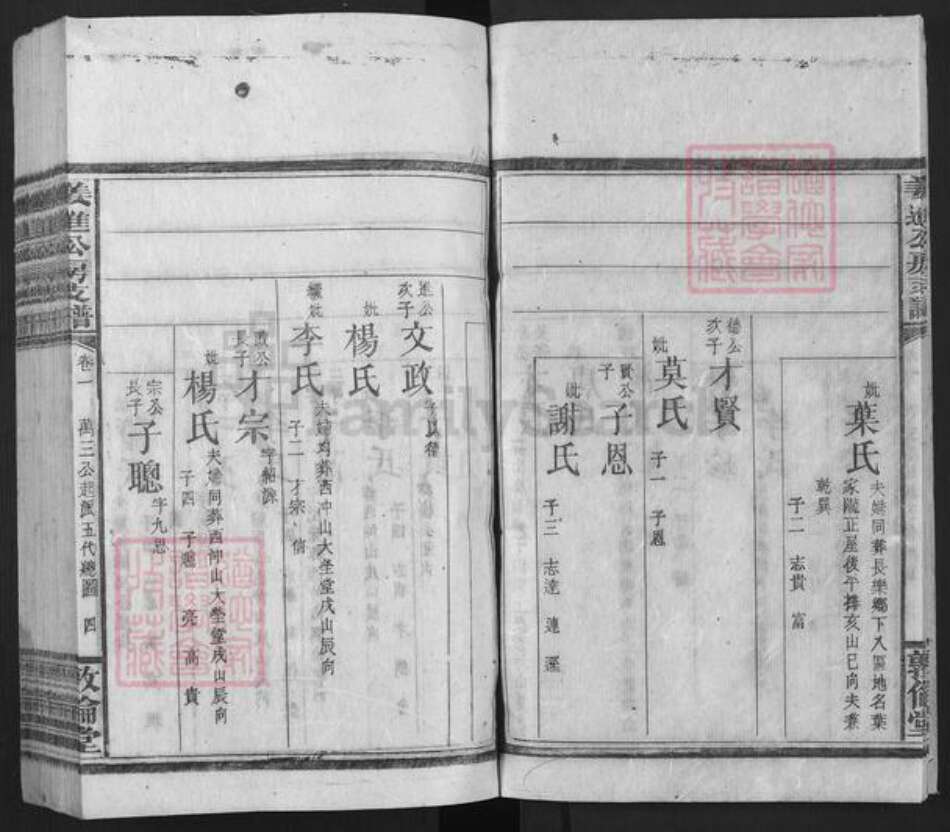 妣葉氏
夫婦同葬長樂鄉下入區地名葉
家隴正屋後平擇亥山巳向夫兼
乾巽
子二 志貴 富
德公次子才賢
妣莫氏 子一 子恩
賢公子子恩
妣謝氏 子三 志達 連 遲
進公次子文政
妣楊氏
繼妣李氏
夫婦均葬西冲山大坐堂戌山辰向
子二 才宗 信
政公長子才宗 字紹
妣楊氏
夫婦同葬西冲山大塋堂戌山辰向
子四 子聰 亮 高 貴
宗公長子子聰 字九思
義進公房支譜
卷一
萬三公起派五代總圖 四
敦倫堂
FamilySearch